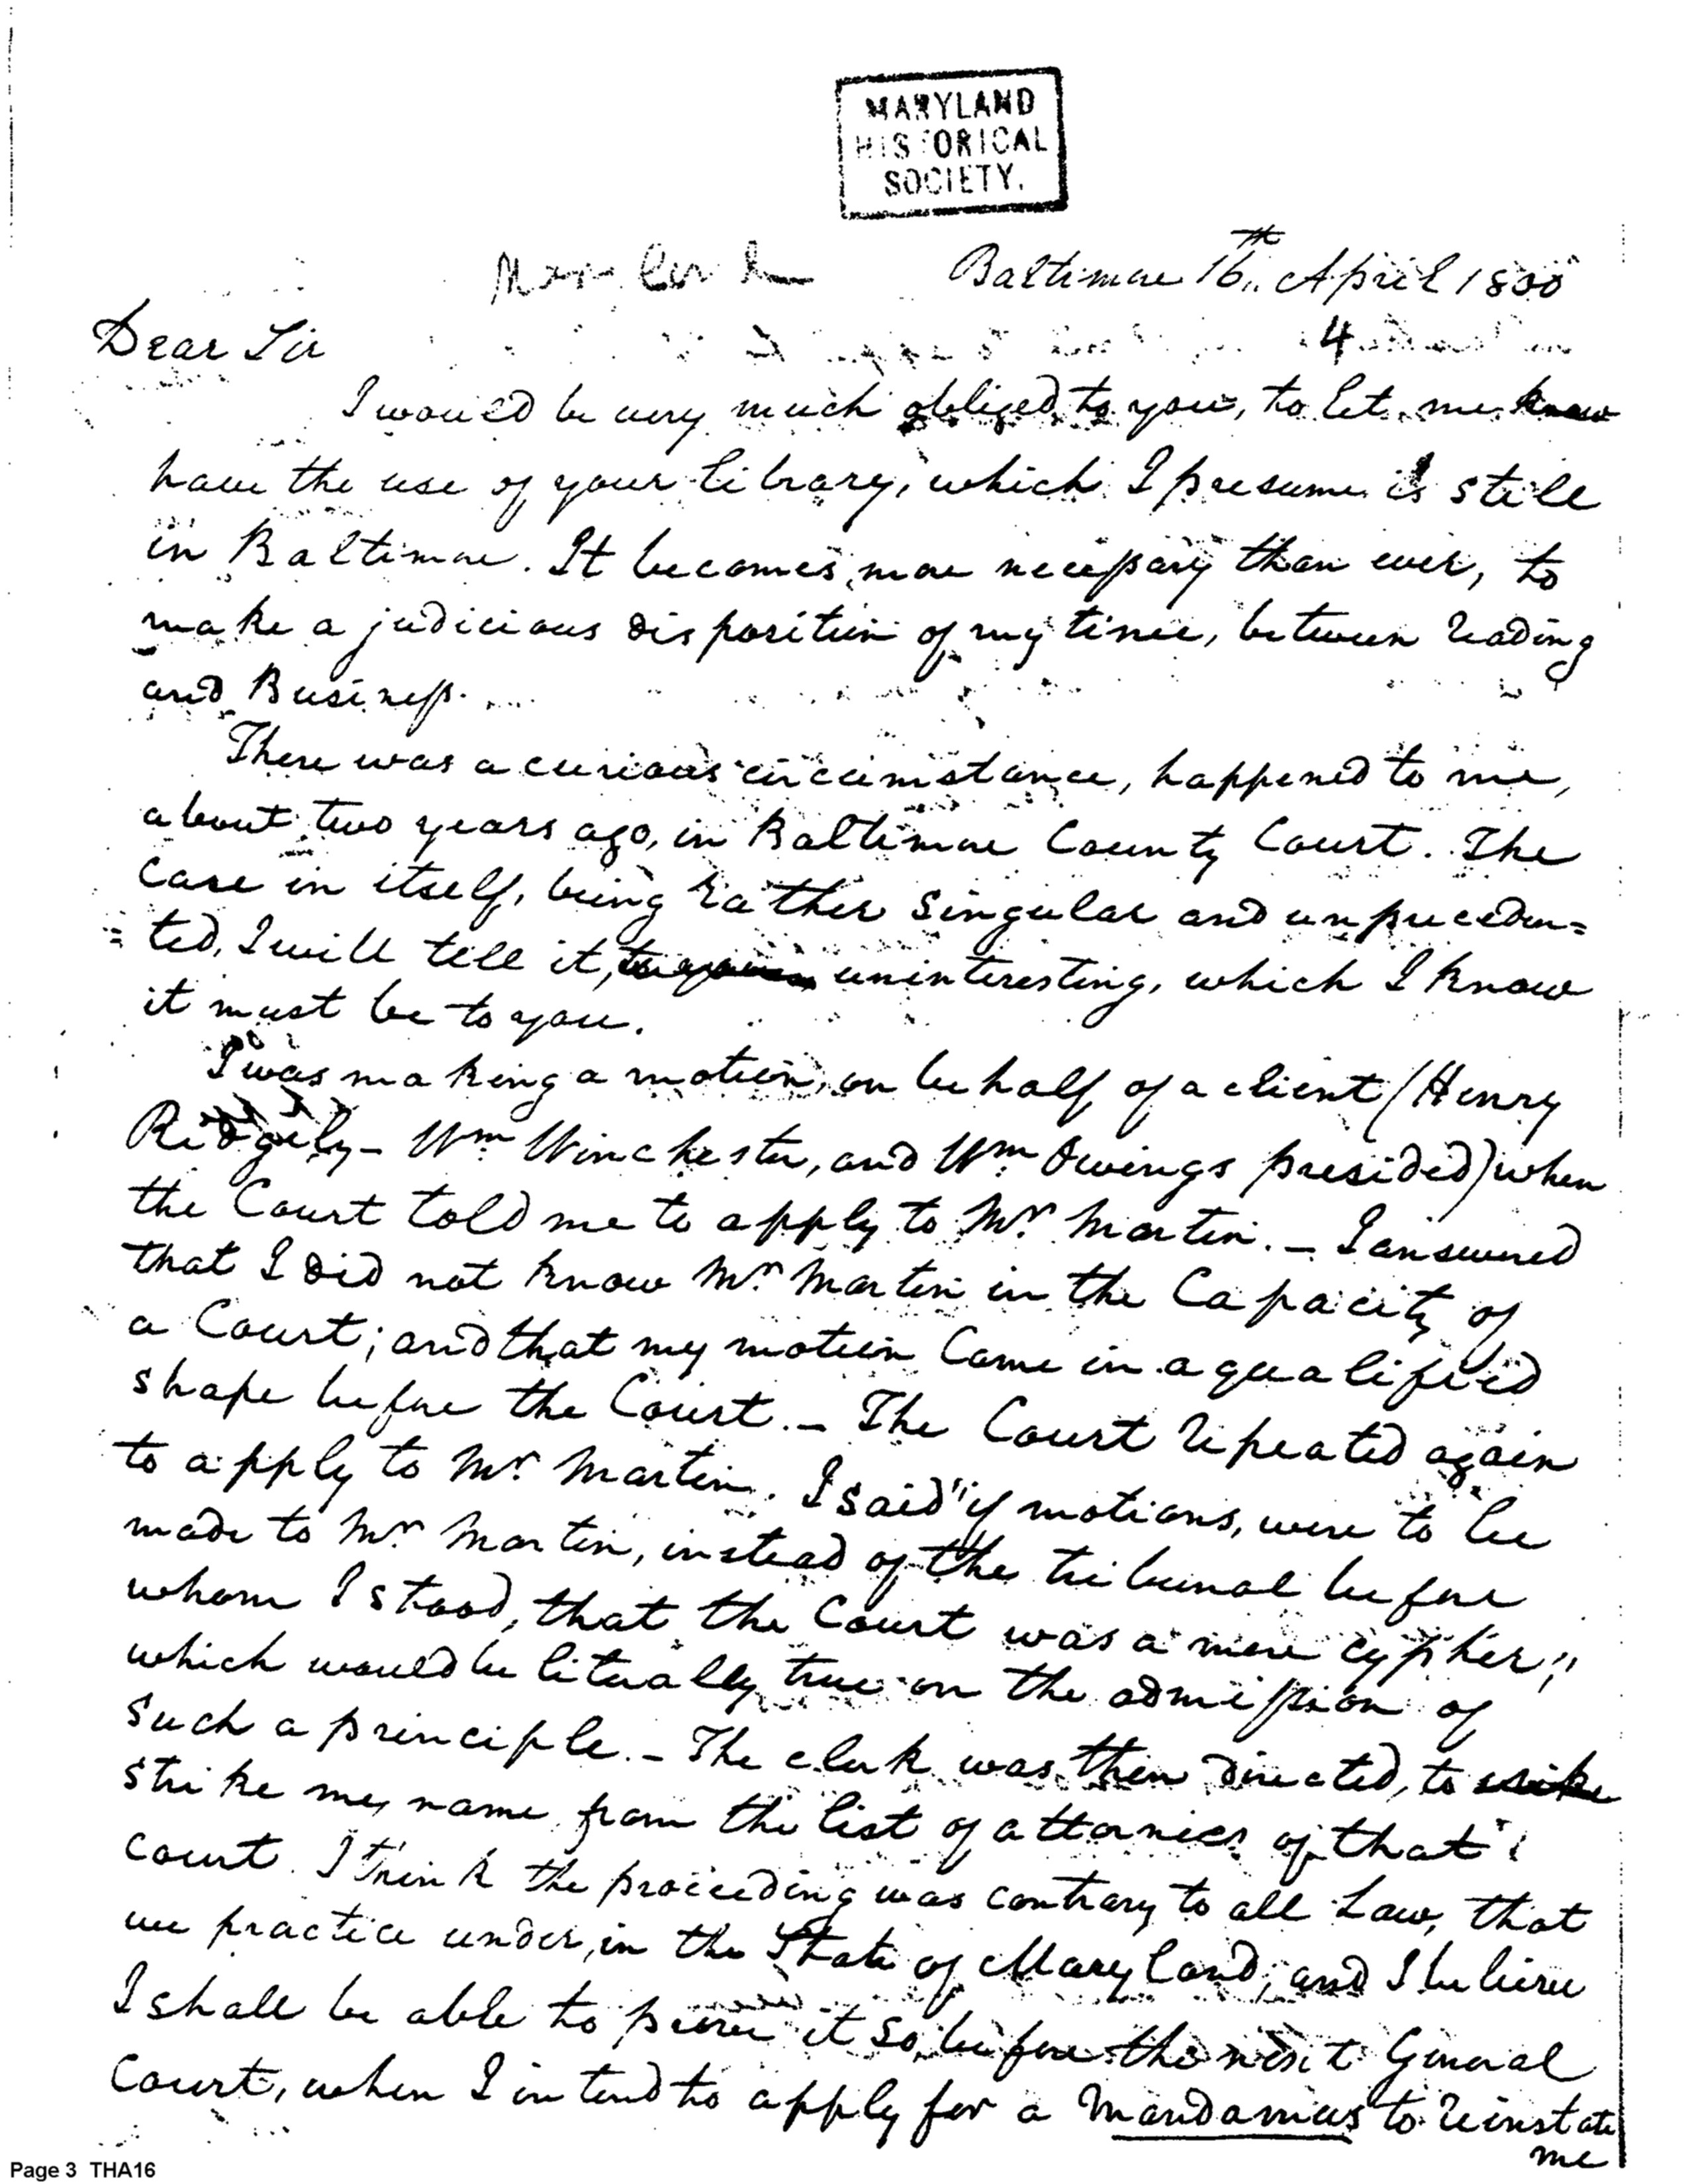 MARYLAND
HISTORICAL
SOCIETY.
Baltimore 16th April 1800
4
Dear Sir
I would be very much obliged to you, to let me know
have the use of your library, which I presume is still
in Baltimore. It becomes more necessary than ever, to
make a judicious disposition of my time, between reading
and Business.
There was a curious circumstance, happened to me,
about two years ago, in Baltimore County Court. The
Case in itself, being rather singular and unpreceden=
=ted, I will tell it, uninteresting, which I know
it must be to you.
I was making a motion, on behalf of a client (Henry
Ridgely - Wm Winchester, and Wm Owings presided) when
the Court told me to apply to Mr. Martin. - I answered
that I did not know Mr Martin in the Capacity of
a Court; and that my motion Came in a qualified
shape before the Court. - The Court repeated again
to apply to Mr Martin. I said "if motions, were to be
made to Mr Martin, instead of the tribunal before
whom I stood, that the Court was a mere cypher,"
which would be literally true on the admission of
such a principle. - The clerk was then directed, to
strike my name from the list of attornies of that
Court. I think the proceeding was contrary to all Law, that
we practice under, in the State of Maryland; and I believe
I shall be able to prove it so, before the next General
Court, when I intend to apply for a Mandamus to reinstate
me
Page 3 THA16